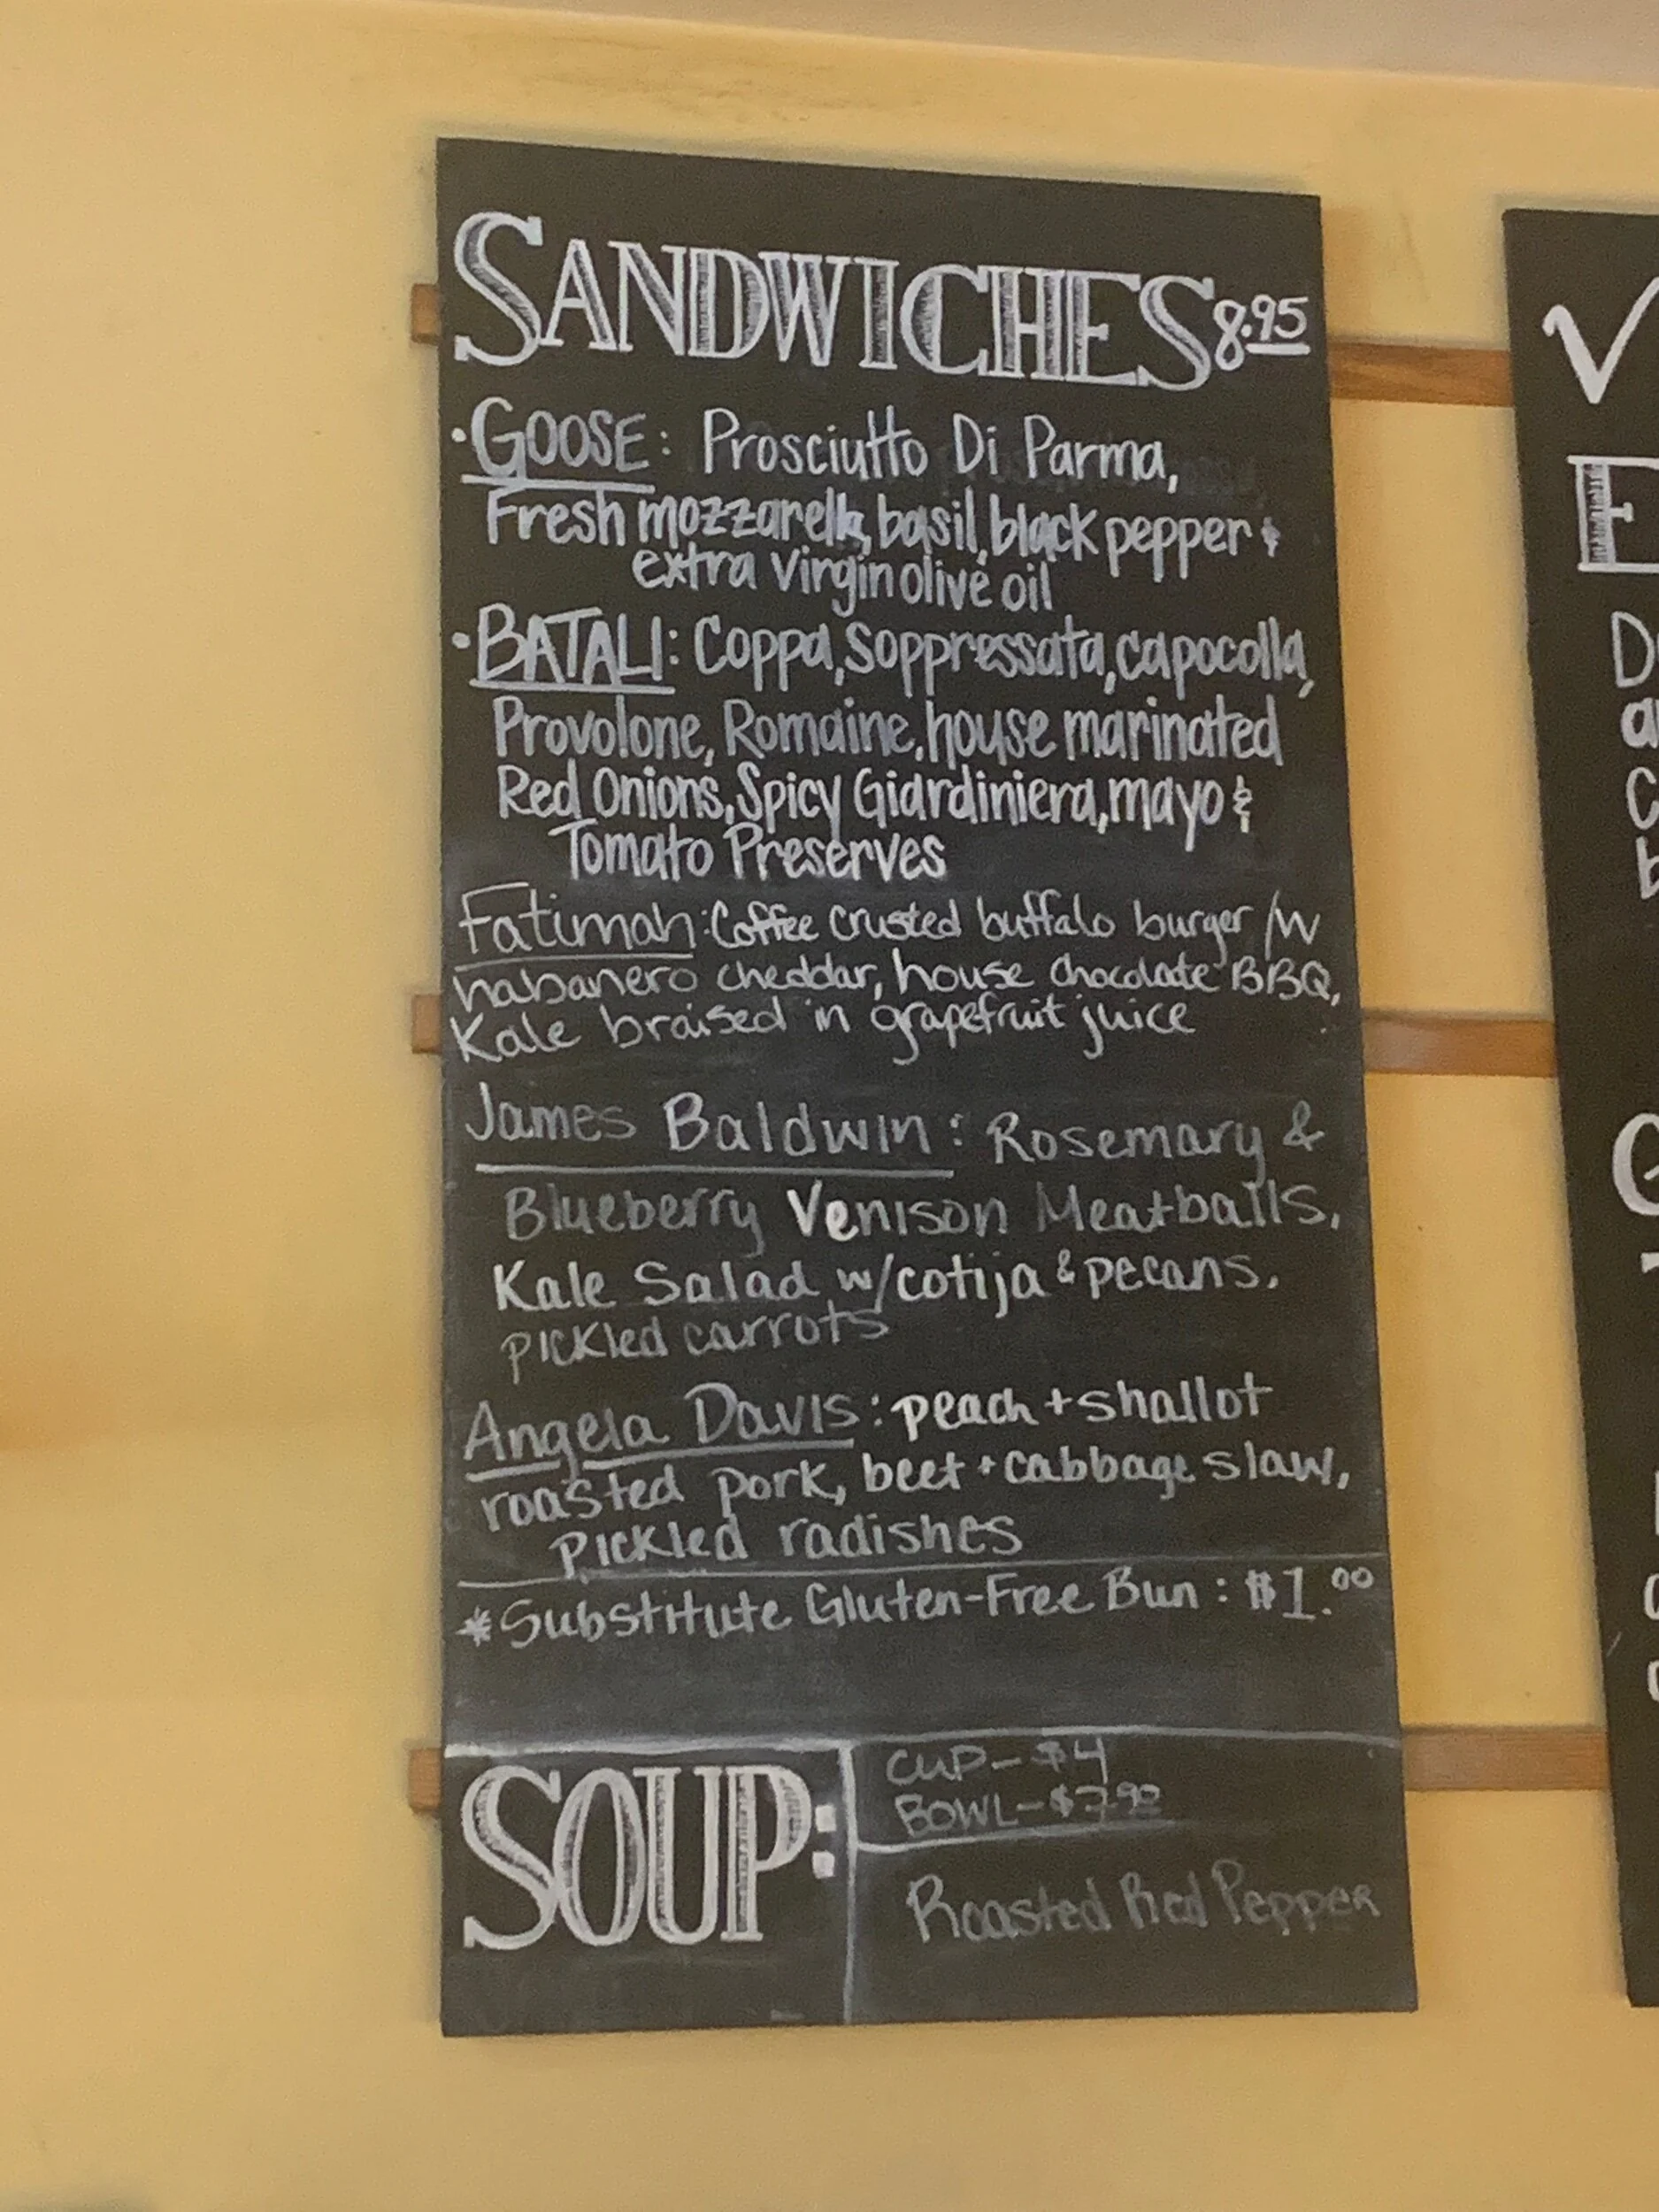 SANDWICHES 8.95
• GOOSE: Prosciutto Di Parma,
Fresh mozzarella, basil, black pepper &
extra virgin olive oil
• BATALI: Coppa, Soppressata, capocolla,
Provolone, Romaine, house marinated
Red Onions, Spicy Giardiniera, mayo &
Tomato Preserves
Fatimah: Coffee crusted buffalo burger /w
habanero cheddar, house chocolate BBQ,
Kale braised in grapefruit juice
James Baldwin: Rosemary &
Blueberry Venison Meatballs,
Kale Salad w/cotija & pecans,
pickled carrots
Angela Davis: peach + shallot
roasted pork, beet + cabbage slaw,
Pickled radishes
*Substitute Gluten-Free Bun: $1.00
SOUP:
CUP - $4
BOWL -
Roasted Red Pepper